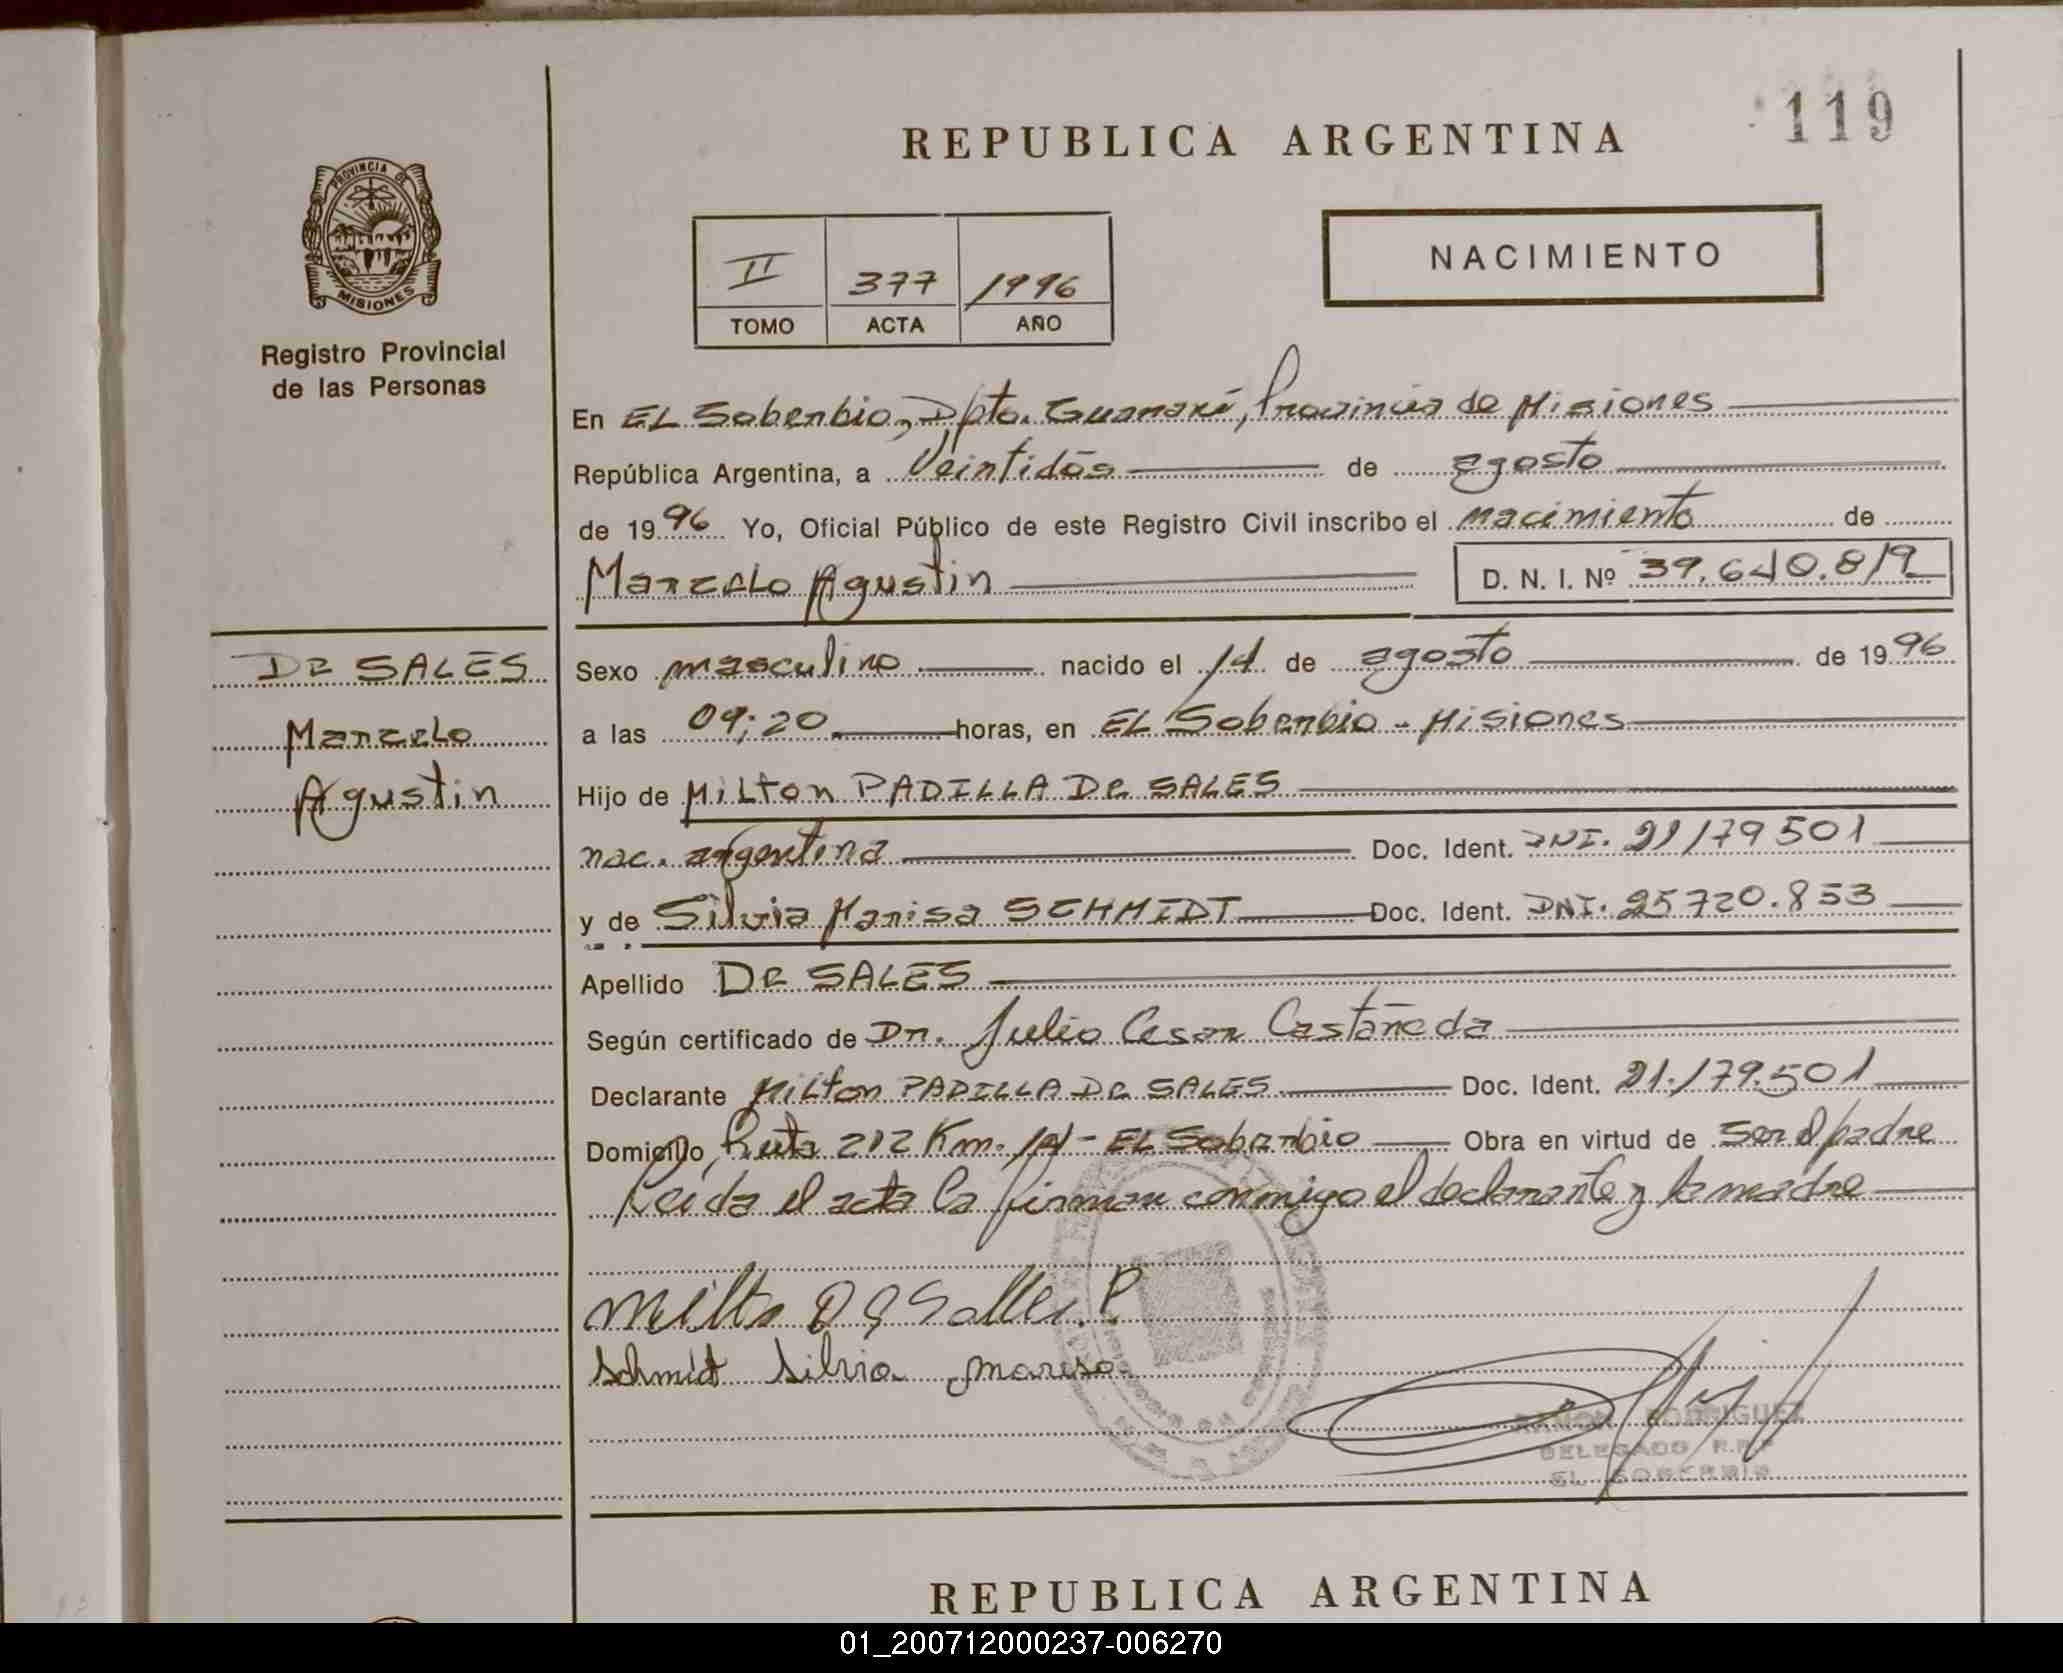 119
REPUBLICA ARGENTINA
NACIMIENTO
PROVINCIA DE
MISIONES
Registro Provincial
de las Personas
II 377 1996
TOMO ACTA AÑO
En EL Soberbio, Dpto. Guaraní, Provincia de Misiones
República Argentina, a Veintidós de agosto
de 1996 Yo, Oficial Público de este Registro Civil inscribo el nacimiento de
Marcelo Agustin D. N. I. Nº 39.640.819
DE SALES
Marcelo
Agustin
Sexo masculino nacido el 14 de agosto de 1996
a las 09;20 horas, en EL Soberbio - Misiones
Hijo de Milton PADILLA De SALES
nac. argentina Doc. Ident. DNI. 21179501
y de Silvia Marisa SCHMIDT Doc. Ident. DNI. 25720.853
Apellido De SALES
Según certificado de Dr. Julio Cesar Castañeda
Declarante Milton PADILLA De SALES Doc. Ident. 21.179.501
Domicilio Ruta 212 Km. 14 - EL Soberbio Obra en virtud de ser el padre
Leida el acta la firman conmigo el declarante y la madre
Schmidt Silvia marisa
RAMON RODRIGUEZ
DELEGADO R.P.P
EL SOBERBIO
REPUBLICA ARGENTINA
01_200712000237-006270